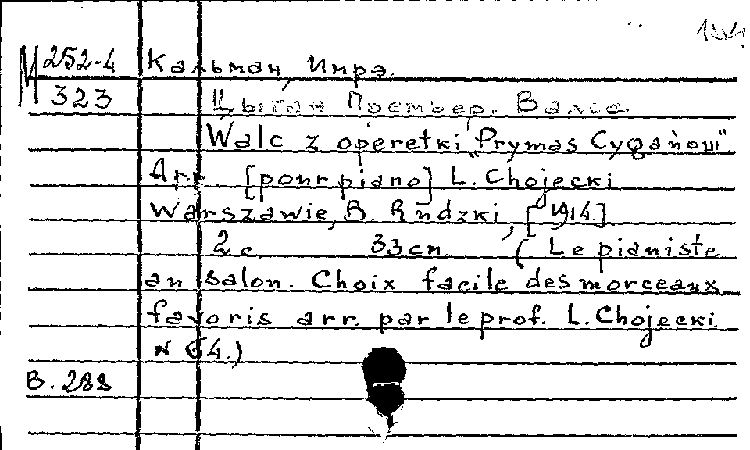 М 252-4 Кальман, Имрэ.
323 Цыган Премьер. Вальс
Walc z operetki "Prymas Cyganów"
Arr. [pour piano] L. Chojecki
Warszawie, B. Rudzki, [1914.]
2 с. 33 см (Le pianiste
au salon. Choix facile des morceaux
favoris arr. par le prof. L. Chojecki
N 64.)
В. 288